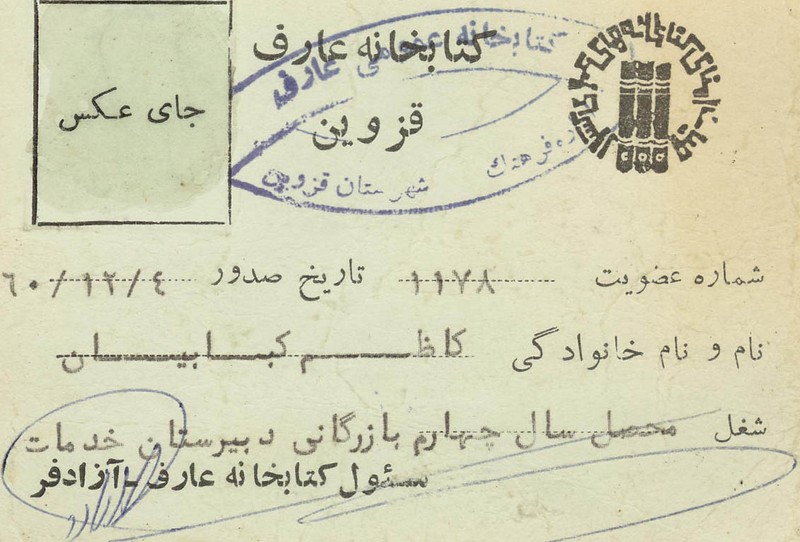 جای عکس
کتابخانه عارف
قزوین
کتابخانه عمومی عارف
شهرستان قزوین
شماره عضویت ۱۱۷۸ تاریخ صدور ۶۰/۱۲/۴
نام و نام خانوادگی کاظم کبابیان
شغل محصل سال چهارم بازرگانی دبیرستان خدمات
مسئول کتابخانه عارف - آزادفر